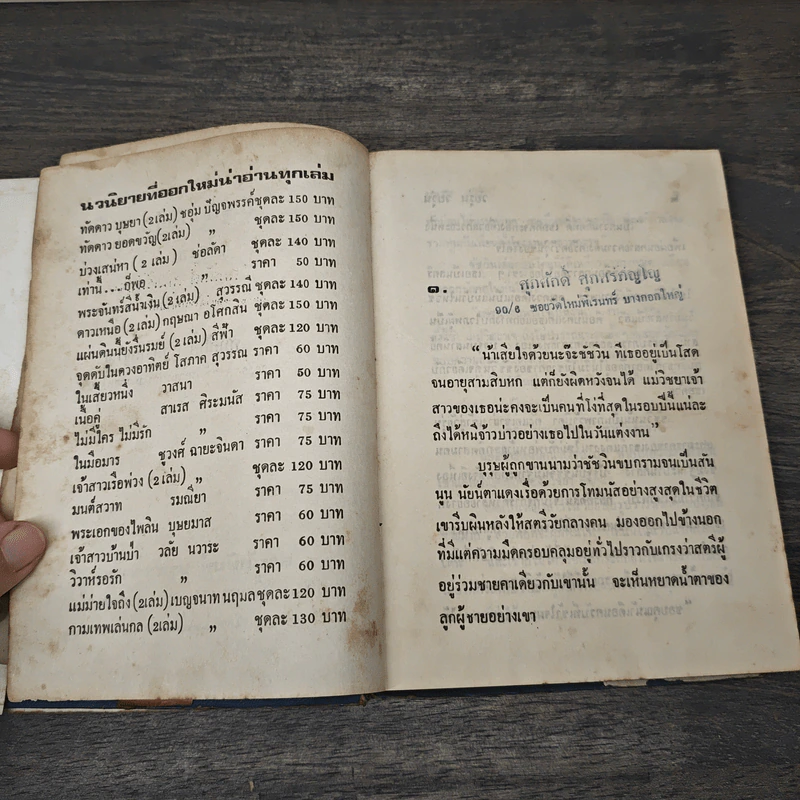 นวนิยายที่ออกใหม่น่าอ่านทุกเล่ม
ทัดดาว บุษยา (2เล่ม) ชอุ่ม ปัญจพรรค์ ชุดละ 150 บาท
ทัดดาว ยอดขวัญ(2เล่ม) " ชุดละ 150 บาท
บ่วงเสน่หา ( 2 เล่ม ) ช่อลัดา ชุดละ 140 บาท
เท่านี้....ก็พอ " ราคา 50 บาท
พระจันทร์สีน้ำเงิน (2 เล่ม ) สุวรรณี ชุดละ 140 บาท
ดาวเหนือ (2 เล่ม) กฤษณา อโศกสิน ชุดละ 150 บาท
แผ่นดินนี้ยังรื่นรมย์ (2 เล่ม) สีฟ้า ชุดละ 120 บาท
จุดดับในดวงอาทิตย์ โสภาค สุวรรณ ราคา 60 บาท
ในเสี้ยวหนึ่ง วาสนา ราคา 50 บาท
เนื้อคู่ สาเรส ศิระมนัส ราคา 75 บาท
ไม่มีใคร ไม่มีรัก " ราคา 75 บาท
ในมือมาร ชูวงศ์ ฉายะจินดา ราคา 75 บาท
เจ้าสาวเรือพ่วง (2 เล่ม) " ชุดละ 120 บาท
มนต์สวาท รมณียา ราคา 75 บาท
พระเอกของไพลิน บุษยมาส ราคา 60 บาท
เจ้าสาวบ้านป่า วลัย นวาระ ราคา 60 บาท
วิวาห์รอรัก " ราคา 60 บาท
แม่ม่ายใจถึง (2เล่ม) เบญจนาท นฤมล ชุดละ 120 บาท
กามเทพเล่นกล (2เล่ม) " ชุดละ 130 บาท
๑.
ศุภศักดิ์ ศุภสิริภิญโญ
๑๐/๕ ซอยวัดใหม่พิเรนทร์ บางกอกใหญ่
"น้าเสียใจด้วยนะจ๊ะชัชวิน ที่เธออยู่เป็นโสด
จนอายุสามสิบหก แต่ก็ยังผิดหวังจนได้ แม่วิชยาเจ้า
สาวของเธอน่ะคงจะเป็นคนที่โง่ที่สุดในรอบปีนี้แน่ละ
ถึงได้หนีจ้าวบ่าวอย่างเธอไปในวันแต่งงาน"
บุรุษผู้ถูกขานนามว่าชัชวินขบกรามจนเป็นสัน
นูน นัยน์ตาแดงเรื่อด้วยการโทมนัสอย่างสูงสุดในชีวิต
เขารีบผินหลังให้สตรีวัยกลางคน มองออกไปข้างนอก
ที่มีแต่ความมืดครอบคลุมอยู่ทั่วไปราวกับเกรงว่าสตรีผู้
อยู่ร่วมชายคาเดียวกับเขานั้น จะเห็นหยาดน้ำตาของ
ลูกผู้ชายอย่างเขา